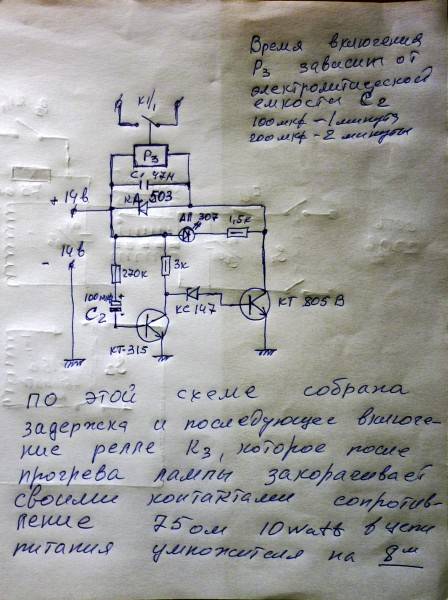 Время включения
P3 зависит от
электролитической
емкости C2
100мкф - 1 минута
200мкф - 2 минуты
K1/1
P3
C1 47н
КД 503
+ 14в
АЛ 307
1,5к
14в
-
270к
3к
100мкф +
C2
КС 147
КТ 805 В
КТ-315
ПО этой схеме собрана
задержка и последующее включе-
ние релле K3, которое после
прогрева лампы закорачивает
своими контактами сопротив-
ление 75ом 10watt в цепи
питания умножителя на 8м